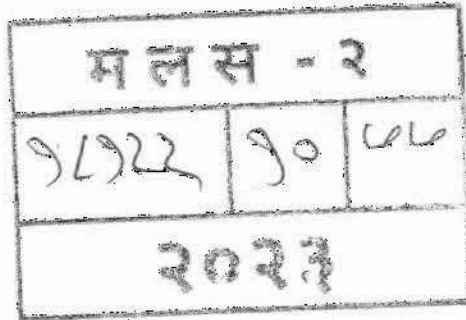 मलस - २
१८१२२ १० ७७
२०२३